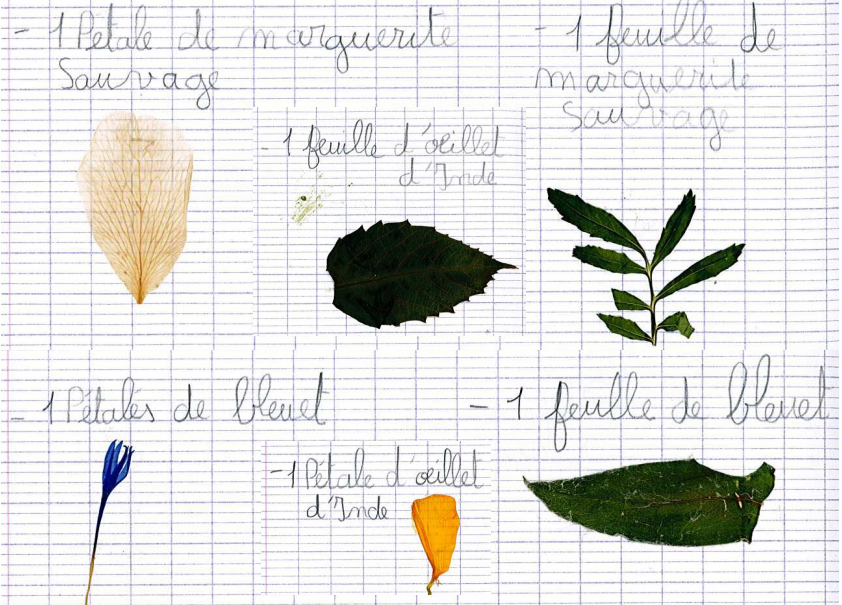 - 1 Pétale de marguerite
Sauvage
- 1 feuille d'œillet
d'Inde
- 1 feuille de
marguerite
Sauvage
- 1 Pétales de bleuet
- 1 Pétale d'œillet
d'Inde
- 1 feuille de bleuet